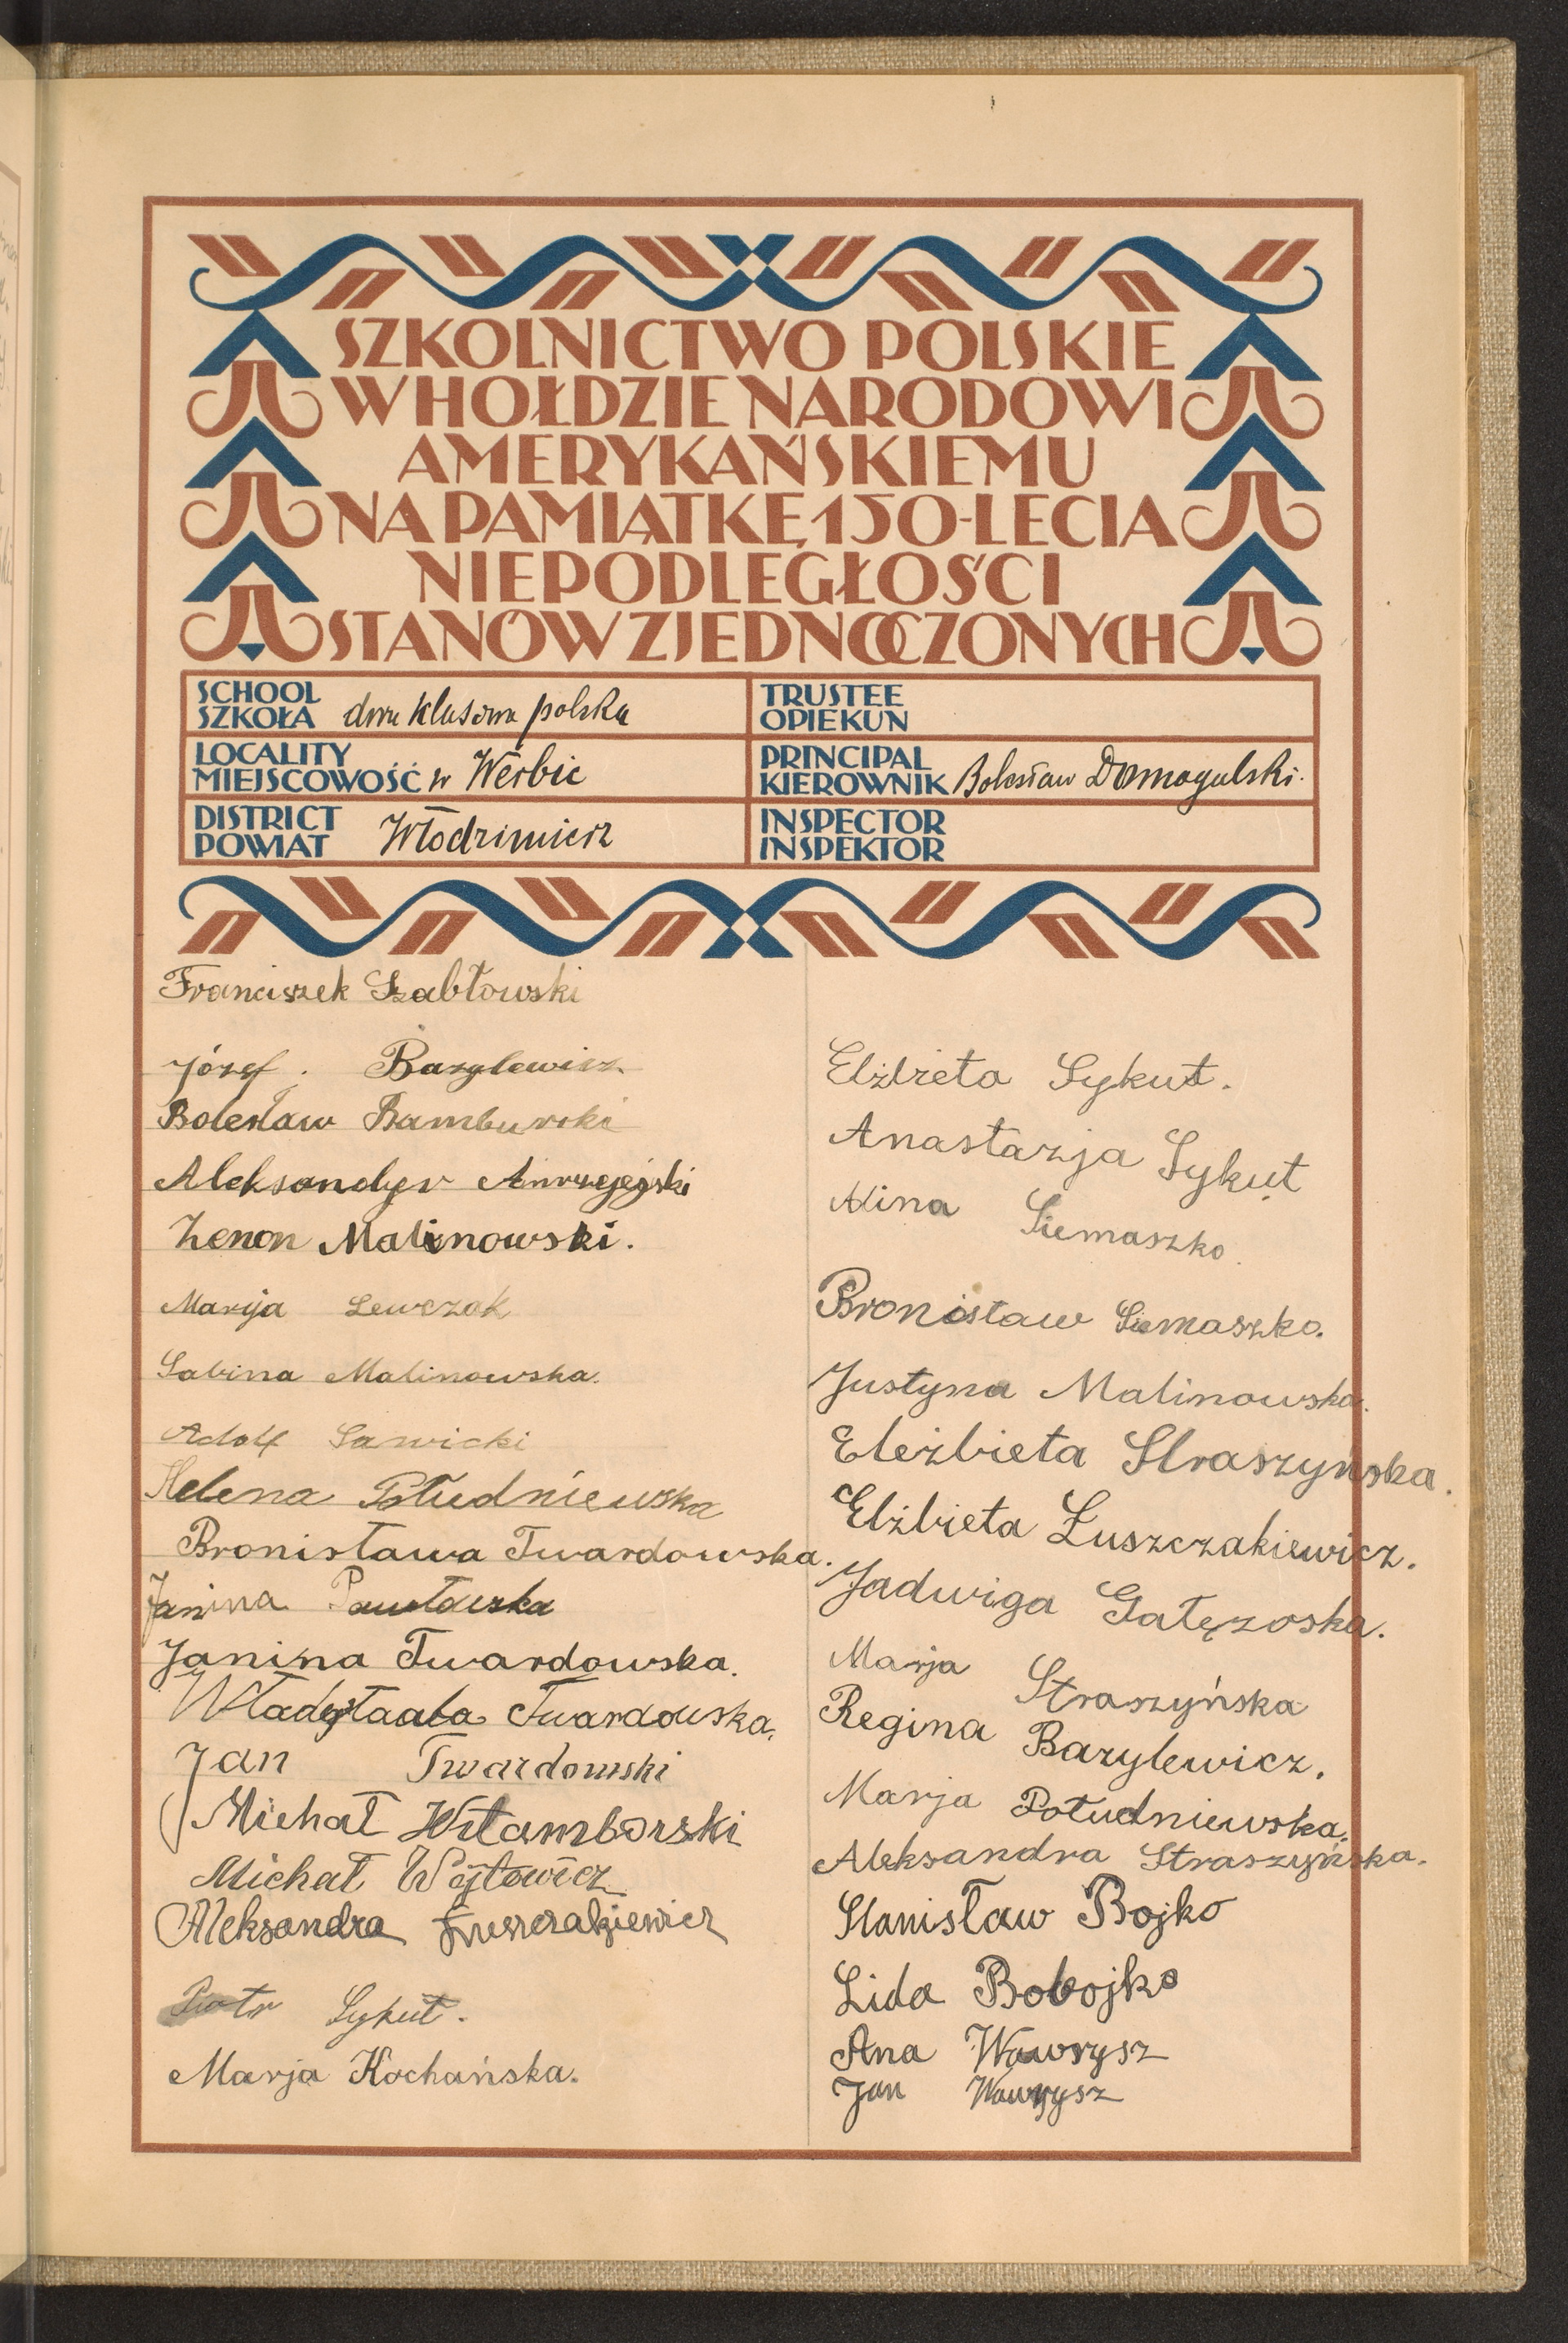 SZKOLNICTWO POLSKIE
W HOŁDZIE NARODOWI
AMERYKAŃSKIEMU
NA PAMIĄTKĘ 150-LECIA
NIEPODLEGŁOŚCI
STANÓW ZJEDNOCZONYCH
SCHOOL
SZKOŁA dwu klasowa polska
LOCALITY
MIEJSCOWOŚĆ w Werbie
DISTRICT
POWIAT Włodzimierz
TRUSTEE
OPIEKUN
PRINCIPAL
KIEROWNIK Bolesław Domogalski.
INSPECTOR
INSPEKTOR
Franciszek Szabłowski
Józef. Bazylewicz
Bolesław Bamburski
Aleksandyr
Zenon Malinowski.
Marija Lewczok
Sabina Malinowska.
Adolf Sawicki
Helena Południewska
Bronisława Twardowska.
Janina
Janina Twardowska.
Twardowska.
Jan Twardowski
Michał
Michał Wójtowicz
Aleksandra Łuszczakiewicz
Piotr Sykut.
Marja Kochańska.
Elżbieta Sykut.
Anastazja Sykut
Alina Siemaszko.
Bronisław Siemaszko.
Justyna Malinowska.
Eleżbieta Straszyńska.
Elżbieta Łuszczakiewicz.
Jadwiga Gałęzoska.
Marja Straszyńska
Regina Bazylewicz.
Marja Południewska.
Aleksandra Straszyńska.
Stanisław Bojko
Lida Bobojko
Ana Wawrysz
Jan Wawrysz